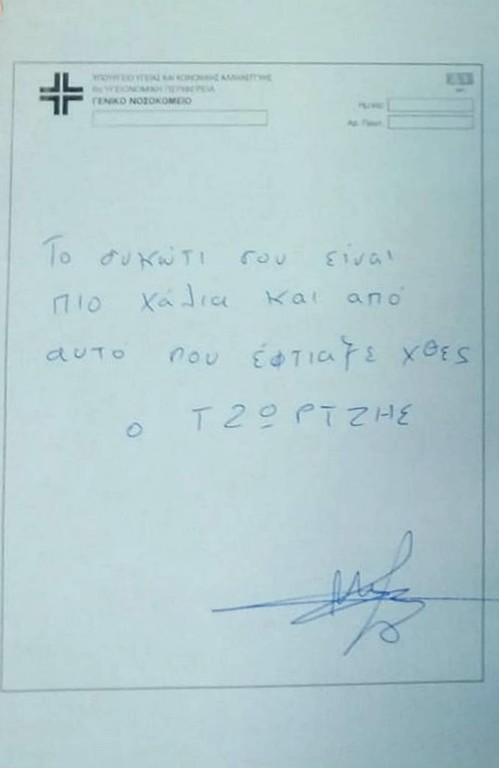 ΥΠΟΥΡΓΕΙΟ ΥΓΕΙΑΣ ΚΑΙ ΚΟΙΝΩΝΙΚΗΣ ΑΛΛΗΛΕΓΓΥΗΣ
ΥΓΕΙΟΝΟΜΙΚΗ ΠΕΡΙΦΕΡΕΙΑ
ΓΕΝΙΚΟ ΝΟΣΟΚΟΜΕΙΟ
Αρ. Πρωτ.
Το συκώτι σου είναι
πιο χάλια και από
αυτό που έφτιαξε χθες
ο ΤΖΩΡΤΖΗΣ